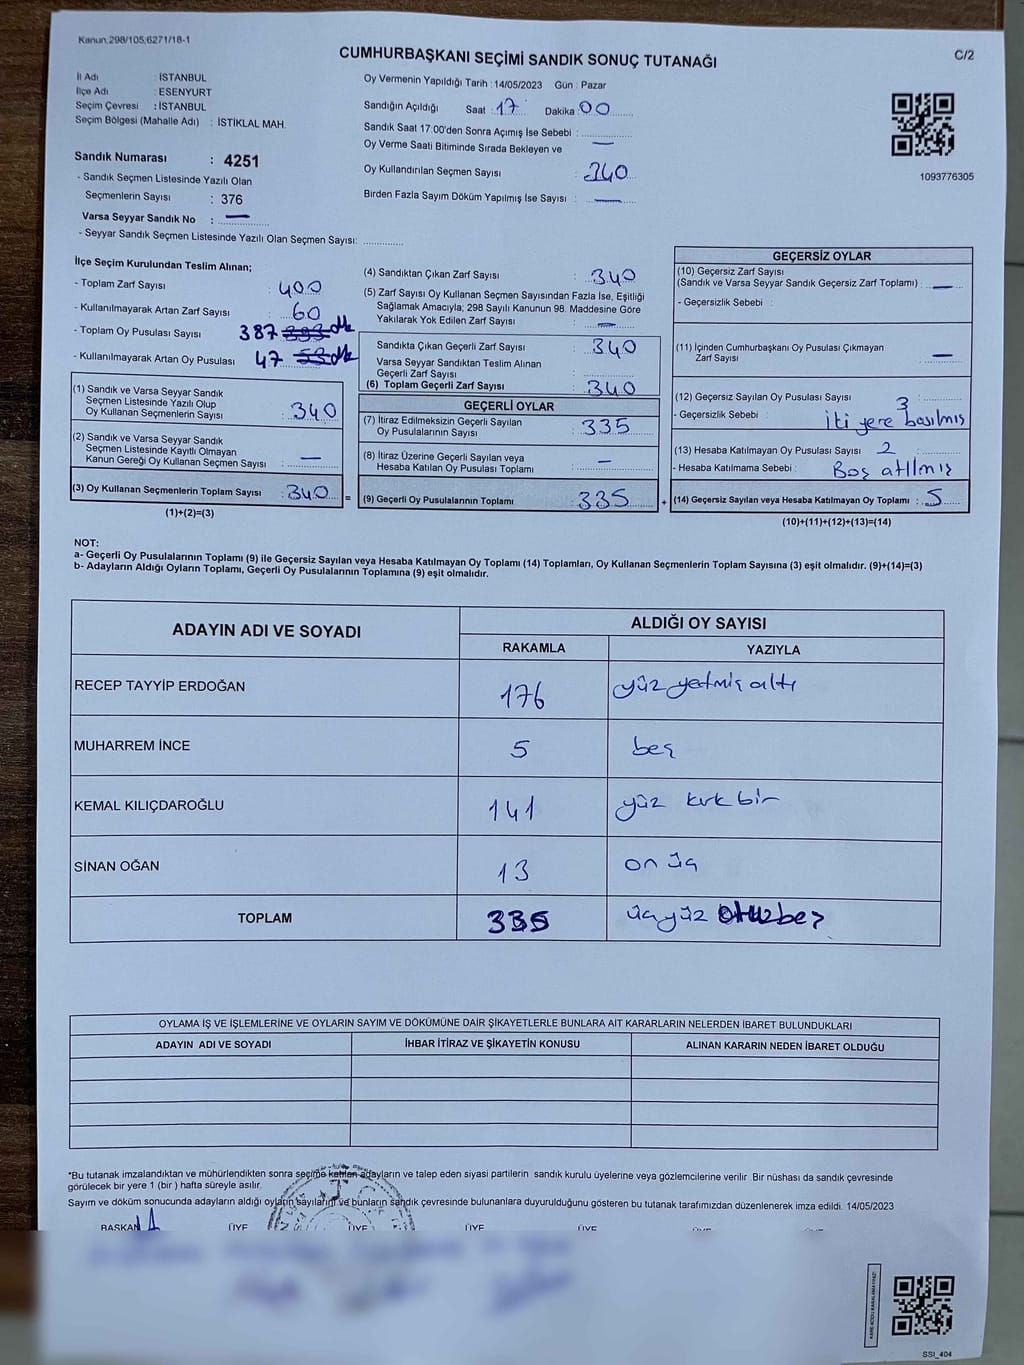 Kanun.298/105,6271/18-1
C/2
CUMHURBAŞKANI SEÇİMİ SANDIK SONUÇ TUTANAĞI
İl Adı : İSTANBUL
İlçe Adı : ESENYURT
Seçim Çevresi : İSTANBUL
Seçim Bölgesi (Mahalle Adı) : İSTİKLAL MAH.
Sandık Numarası : 4251
- Sandık Seçmen Listesinde Yazılı Olan
Seçmenlerin Sayısı : 376
Varsa Seyyar Sandık No : —
- Seyyar Sandık Seçmen Listesinde Yazılı Olan Seçmen Sayısı: ............
Oy Vermenin Yapıldığı Tarih : 14/05/2023 Gün : Pazar
Sandığın Açıldığı Saat : 17 Dakika : 00
Sandık Saat 17:00'den Sonra Açımış İse Sebebi :
Oy Verme Saati Bitiminde Sırada Bekleyen ve —
Oy Kullandırılan Seçmen Sayısı : 340
Birden Fazla Sayım Döküm Yapılmış İse Sayısı : —
1093776305
İlçe Seçim Kurulundan Teslim Alınan;
- Toplam Zarf Sayısı : 400
- Kullanılmayarak Artan Zarf Sayısı : 60
- Toplam Oy Pusulası Sayısı 387
- Kullanılmayarak Artan Oy Pusulası 47
(1) Sandık ve Varsa Seyyar Sandık
Seçmen Listesinde Yazılı Olup
Oy Kullanan Seçmenlerin Sayısı : 340
(2) Sandık ve Varsa Seyyar Sandık
Seçmen Listesinde Kayıtlı Olmayan
Kanun Gereği Oy Kullanan Seçmen Sayısı : —
(3) Oy Kullanan Seçmenlerin Toplam Sayısı : 340 =
(1)+(2)=(3)
(4) Sandıktan Çıkan Zarf Sayısı : 340
(5) Zarf Sayısı Oy Kullanan Seçmen Sayısından Fazla İse, Eşitliği
Sağlamak Amacıyla; 298 Sayılı Kanunun 98. Maddesine Göre
Yakılarak Yok Edilen Zarf Sayısı : —
Sandıkta Çıkan Geçerli Zarf Sayısı : 340
Varsa Seyyar Sandıktan Teslim Alınan
Geçerli Zarf Sayısı :
(6) Toplam Geçerli Zarf Sayısı : 340
GEÇERLİ OYLAR
(7) İtiraz Edilmeksizin Geçerli Sayılan
Oy Pusulalarının Sayısı : 335
(8) İtiraz Üzerine Geçerli Sayılan veya
Hesaba Katılan Oy Pusulası Toplamı : —
(9) Geçerli Oy Pusulalarının Toplamı : 335 +
GEÇERSİZ OYLAR
(10) Geçersiz Zarf Sayısı
(Sandık ve Varsa Seyyar Sandık Geçersiz Zarf Toplamı) : —
- Geçersizlik Sebebi :
(11) İçinden Cumhurbaşkanı Oy Pusulası Çıkmayan
Zarf Sayısı —
(12) Geçersiz Sayılan Oy Pusulası Sayısı : 3
- Geçersizlik Sebebi : İki yere basılmış
(13) Hesaba Katılmayan Oy Pusulası Sayısı 2
- Hesaba Katılmama Sebebi : Boş atılmış
(14) Geçersiz Sayılan veya Hesaba Katılmayan Oy Toplamı : 5
(10)+(11)+(12)+(13)=(14)
NOT:
a- Geçerli Oy Pusulalarının Toplamı (9) ile Geçersiz Sayılan veya Hesaba Katılmayan Oy Toplamı (14) Toplamları, Oy Kullanan Seçmenlerin Toplam Sayısına (3) eşit olmalıdır. (9)+(14)=(3)
b- Adayların Aldığı Oyların Toplamı, Geçerli Oy Pusulalarının Toplamına (9) eşit olmalıdır.
ADAYIN ADI VE SOYADI ALDIĞI OY SAYISI
RAKAMLA YAZIYLA
RECEP TAYYİP ERDOĞAN 176 yüz yetmiş altı
MUHARREM İNCE 5 beş
KEMAL KILIÇDAROĞLU 141 yüz kırk bir
SİNAN OĞAN 13 on üç
TOPLAM 335 üçyüz otuzbeş
OYLAMA İŞ VE İŞLEMLERİNE VE OYLARIN SAYIM VE DÖKÜMÜNE DAİR ŞİKAYETLERLE BUNLARA AİT KARARLARIN NELERDEN İBARET BULUNDUKLARI
ADAYIN ADI VE SOYADI İHBAR İTİRAZ VE ŞİKAYETİN KONUSU ALINAN KARARIN NEDEN İBARET OLDUĞU
*Bu tutanak imzalandıktan ve mühürlendikten sonra seçime katılan adayların ve talep eden siyasi partilerin sandık kurulu üyelerine veya gözlemcilerine verilir. Bir nüshası da sandık çevresinde
görülecek bir yere 1 (bir ) hafta süreyle asılır.
Sayım ve döküm sonucunda adayların aldığı oyların sayılarını ve bunların sandık çevresinde bulunanlara duyurulduğunu gösteren bu tutanak tarafımızdan düzenlenerek imza edildi. 14/05/2023
BAŞKAN ÜYE ÜYE ÜYE ÜYE ÜYE ÜYE
SSI_404